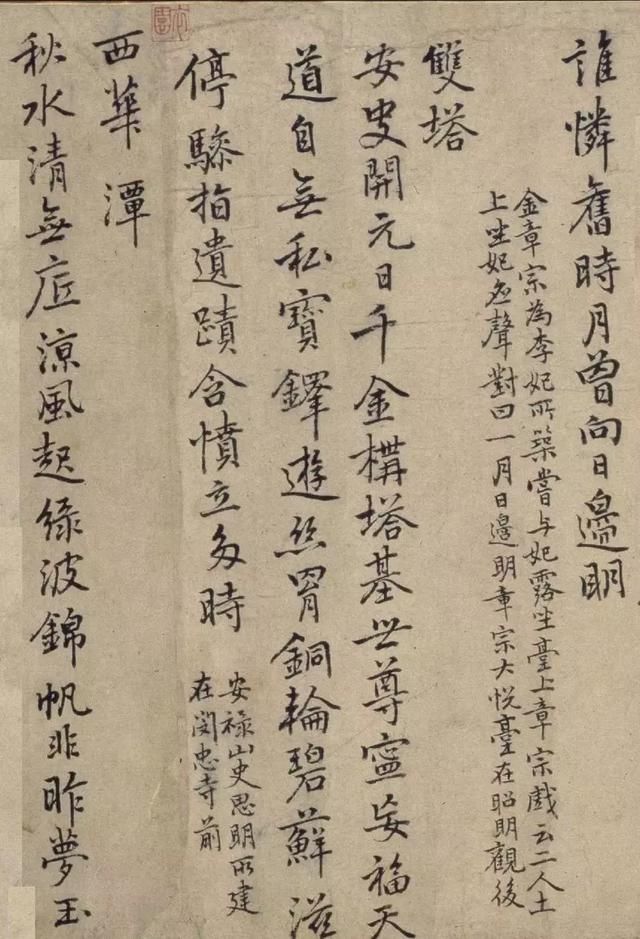 誰憐舊時月曽向日邊明
金章宗為李妃所築嘗与妃露坐臺上章宗戲云二人土
上坐妃應聲對曰一月日邊明章宗大悅臺在昭明觀後
雙塔
安史開元日千金構塔基世尊寧妄福天
道自無私寶鐸遊絲罥銅輪碧蘚滋
停驂指遺蹟含憤立多時
安祿山史思明所建
在閔忠寺前
西華潭
秋水清無底涼風起綠波錦帆非昨夢玉